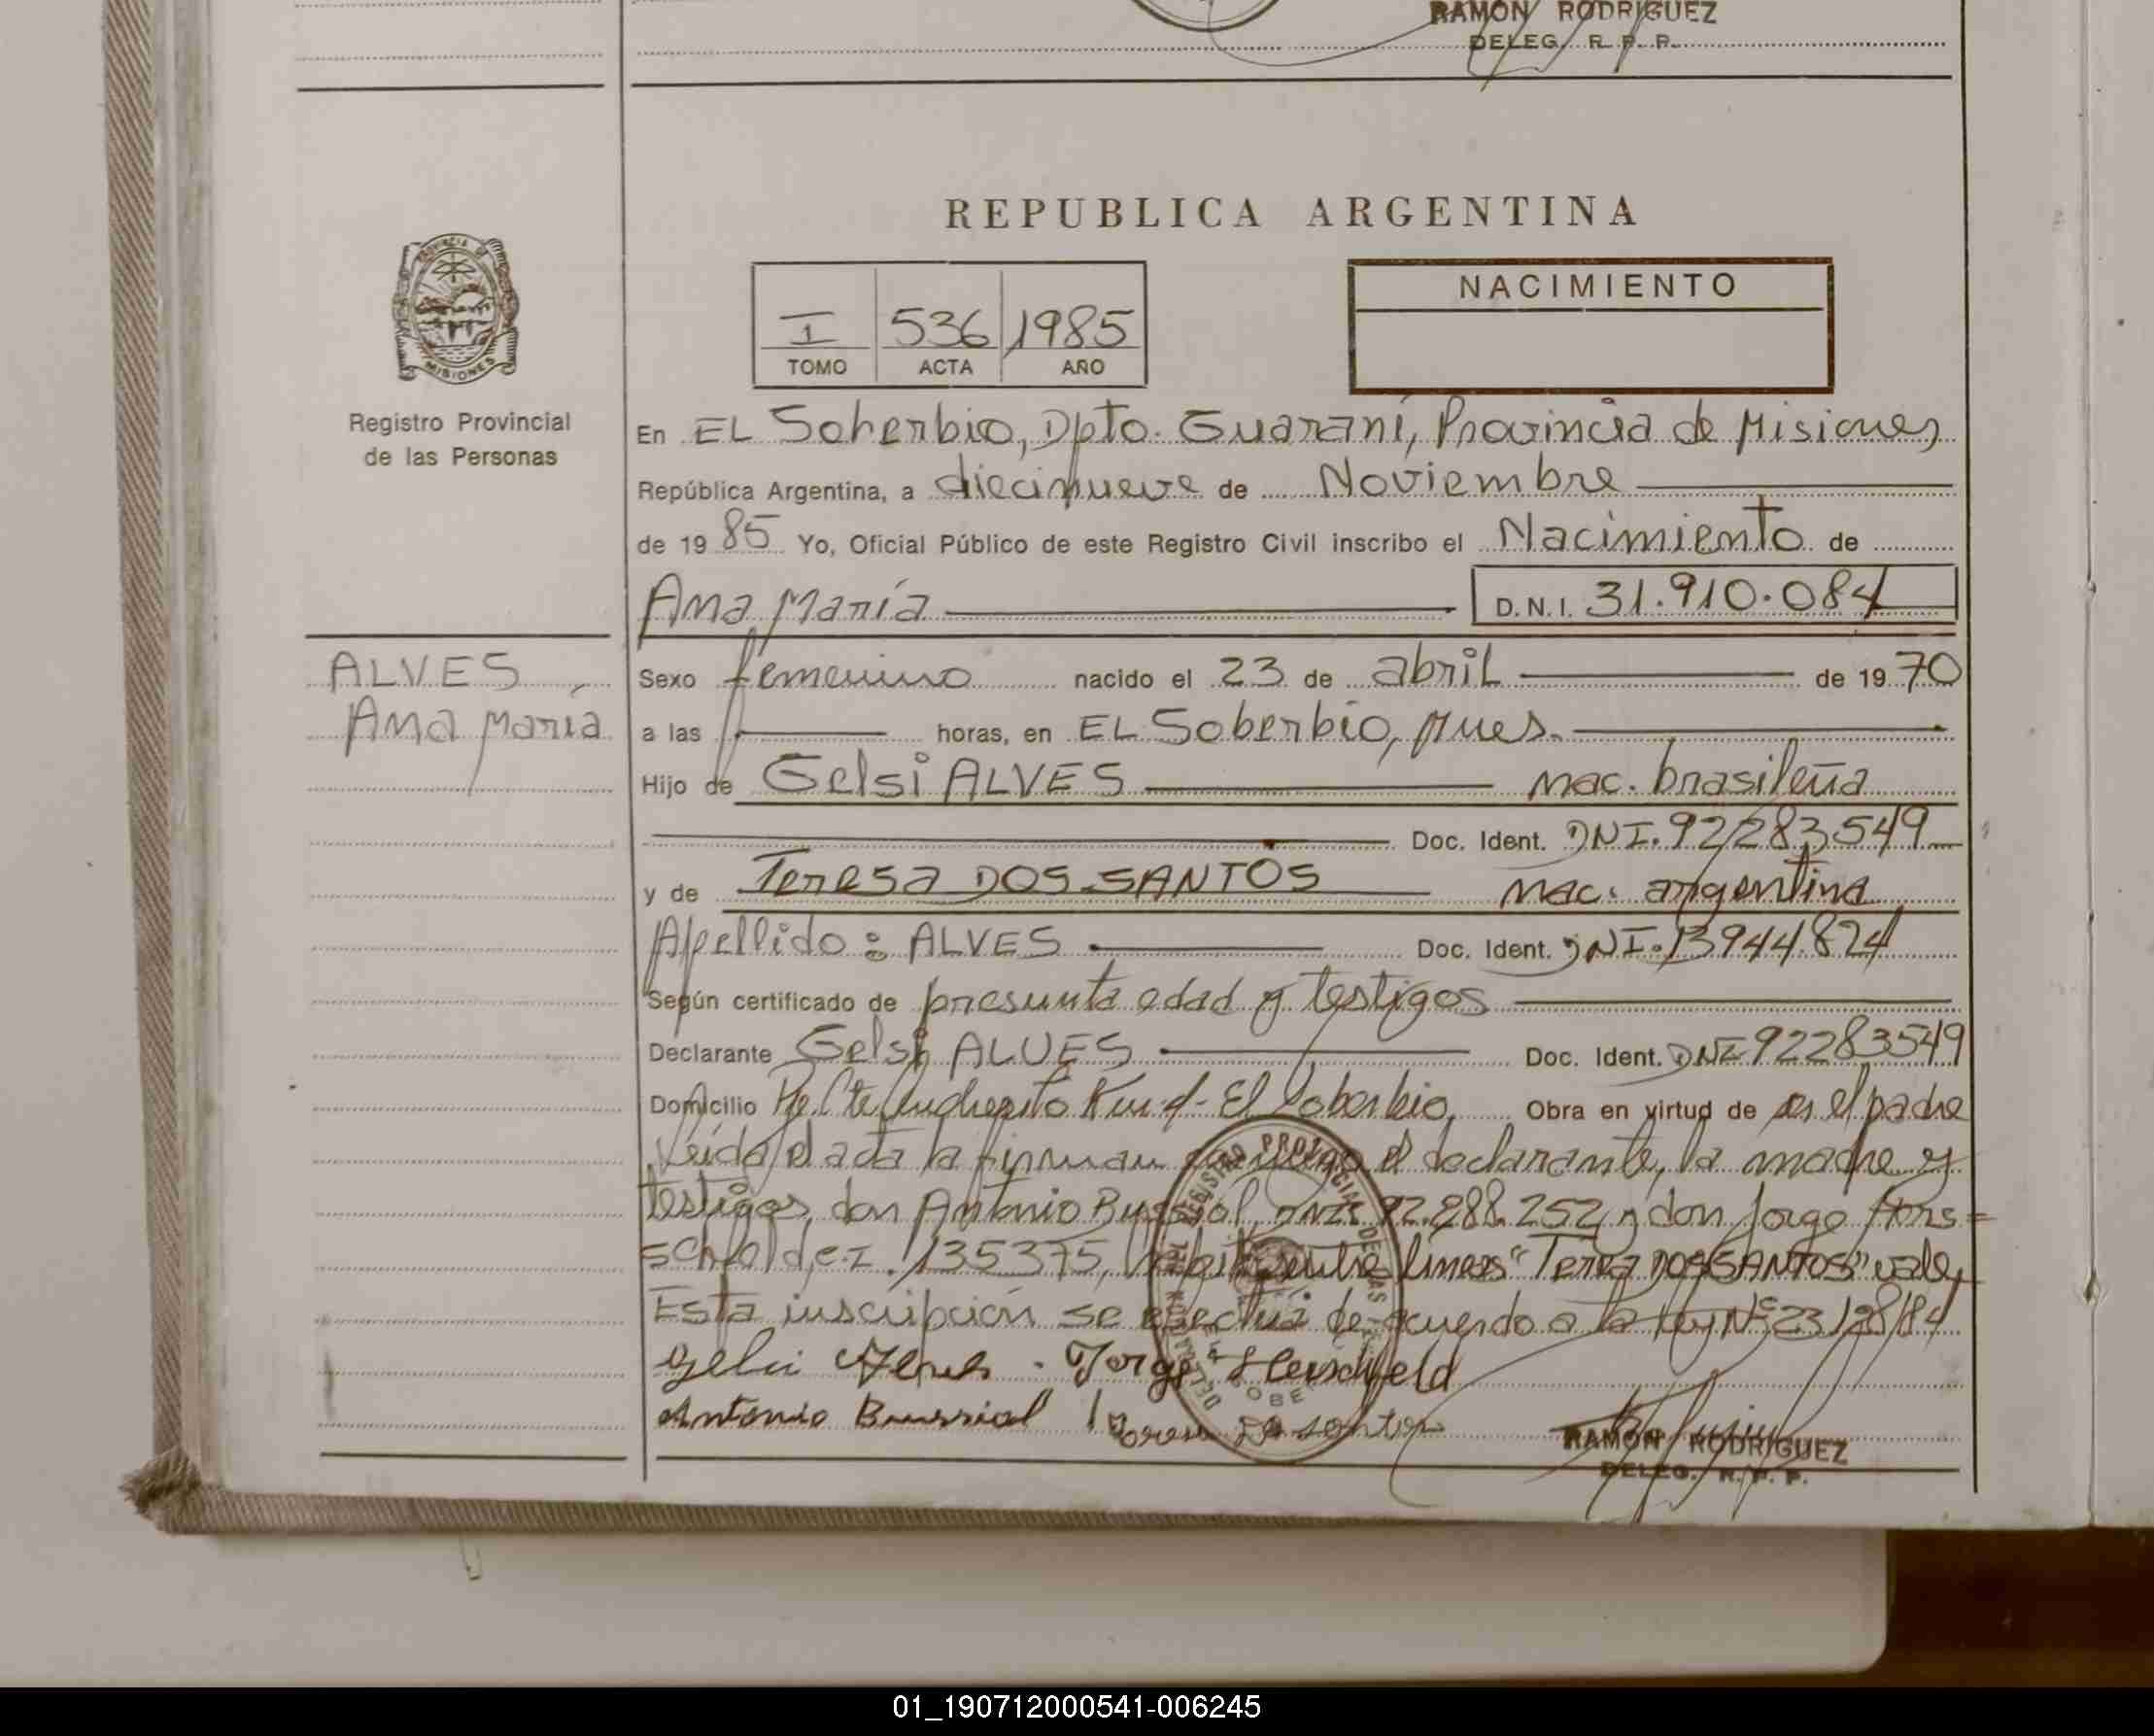 RAMON RODRIGUEZ
DELEG. R. P. P.
REPUBLICA ARGENTINA
PROVINCIA DE
MISIONES
Registro Provincial
de las Personas
I 536 1985
TOMO ACTA AÑO
NACIMIENTO
En EL Soberbio, Dpto. Guaraní, Provincia de Misiones
República Argentina, a diecinueve de Noviembre
de 19 85 Yo, Oficial Público de este Registro Civil inscribo el Nacimiento de
Ana María D.N.I. 31.910.084
ALVES
Ana María
Sexo femenino nacido el 23 de abril de 19 70
a las horas, en EL Soberbio, Mnes.
Hijo de Gelsi ALVES nac. brasileña
Doc. Ident. DNI. 92283549
y de Teresa DOS SANTOS nac. argentina
Apellido: ALVES Doc. Ident. DNI. 13944.824
Según certificado de presunta edad y testigos
Declarante Gelsi ALVES Doc. Ident. DNI 92283549
Domicilio El Soberbio, Obra en virtud de ser el padre
Leida el acta la firman conmigo el declarante, la madre y
testigos, don Antonio Bussiol, DNI. 92.288.252 y don Jorge Hers=
schfeld, C.I. 135375, entre lineas "Teresa DOS SANTOS" vale,
Esta inscripción se efectua de acuerdo a la Ley Nº 23128/84
Gelsi Alves - Jorge Herschfeld
Antonio Bussiol
RAMON RODRIGUEZ
DELEG. R. P. P.
01_190712000541-006245